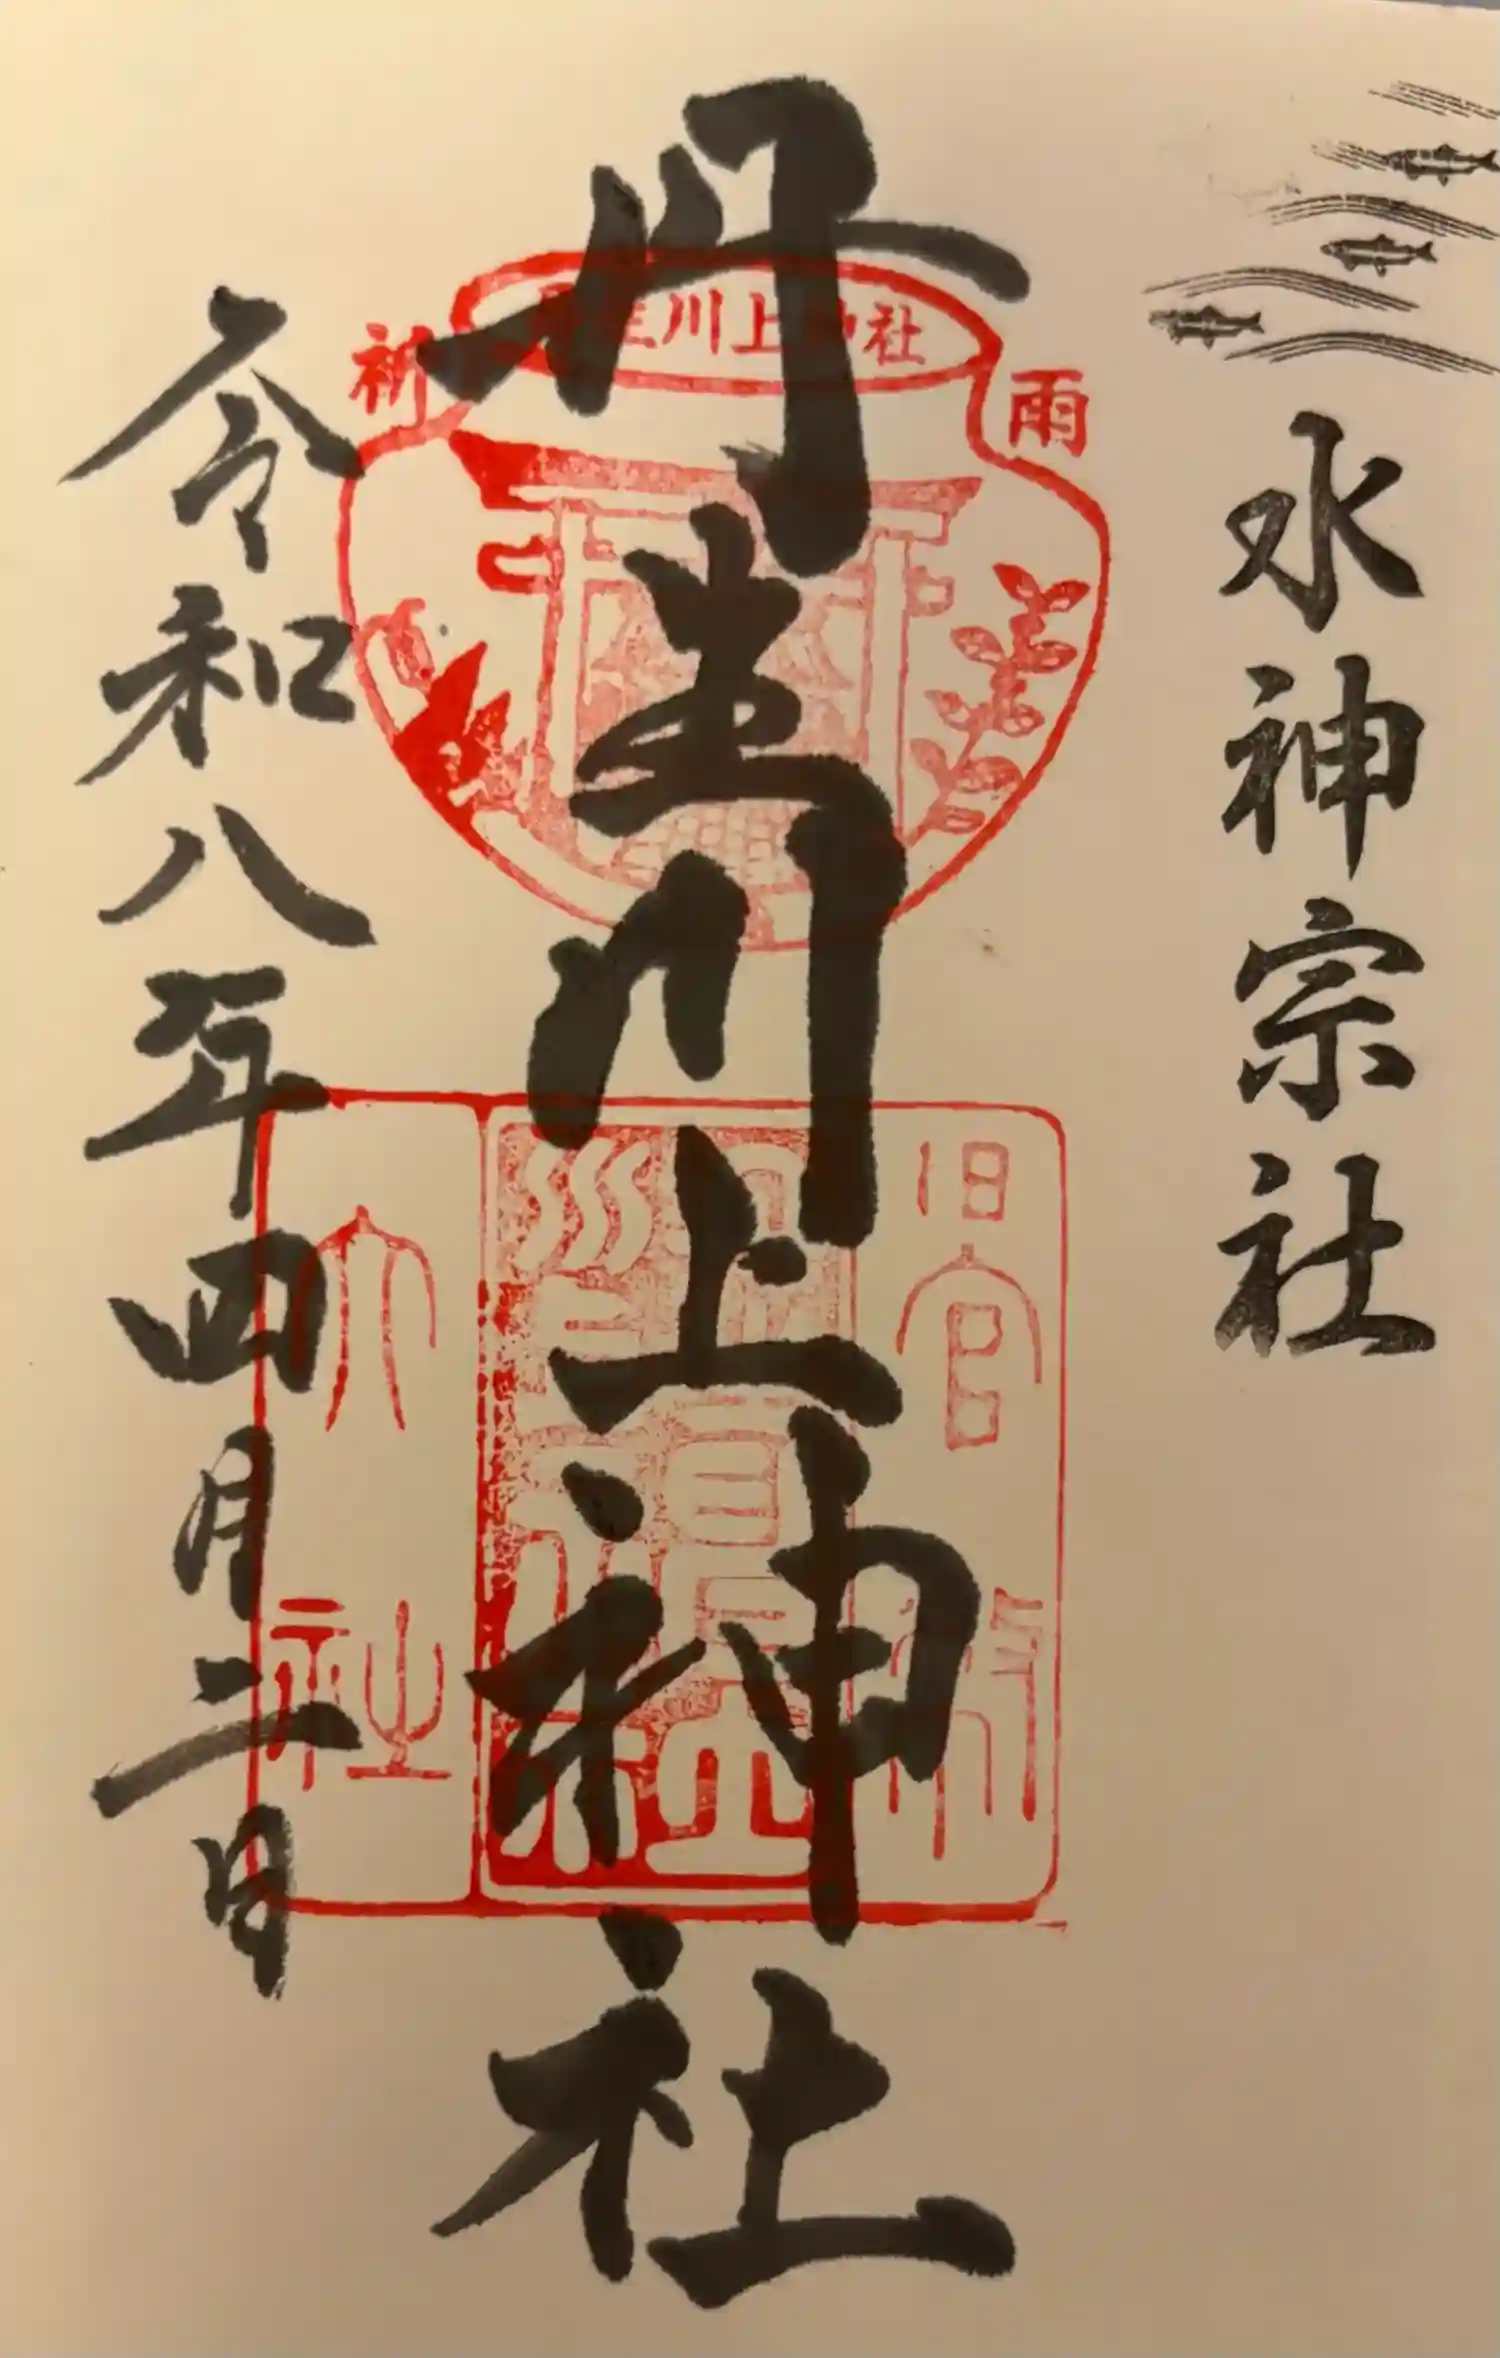 水神宗社
丹生川上神社
令和八年四月二日
祈雨
丹生川上神社
旧官幣
大社